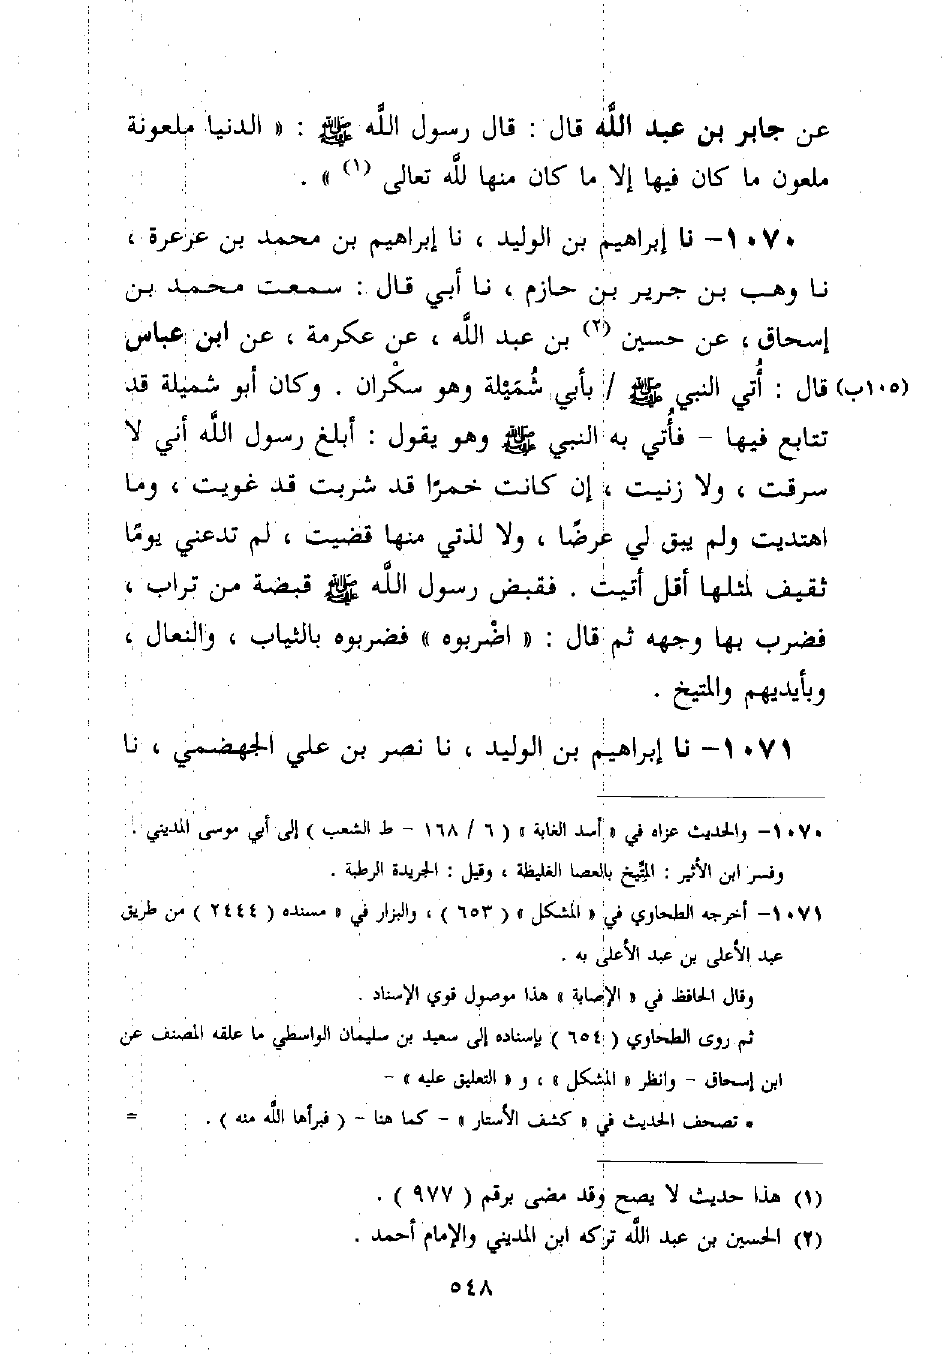 عن جابر بن عبد اللَّه قال : قال رسول اللَّه ﷺ : « الدنيا ملعونة
ملعون ما كان فيها إلا ما كان منها للَّه تعالى (١) » .
١٠٧٠- نا إبراهيم بن الوليد ، نا إبراهيم بن محمد بن عرعرة ،
نا وهب بن جرير بن حازم ، نا أبي قال : سمعت محمد بن
إسحاق ، عن حسين (٢) بن عبد اللَّه ، عن عكرمة ، عن ابن عباس
(١٠٥ب) قال : أُتي النبي ﷺ / بأبي شُمَيْلة وهو سكْران . وكان أبو شميلة قد
تتابع فيها - فأُتي به النبي ﷺ وهو يقول : أبلغ رسول اللَّه أني لا
سرقت ، ولا زنيت ، إن كانت خمرًا قد شربت قد غويت ، وما
اهتديت ولم يبق لي عرضًا ، ولا لذتي منها قضيت ، لم تدعني يومًا
ثقيف لمثلها أقل أتيت . فقبض رسول اللَّه ﷺ قبضة من تراب ،
فضرب بها وجهه ثم قال : « اضْربوه » فضربوه بالثياب ، والنعال ،
وبأيديهم والمتيخ .
١٠٧١- نا إبراهيم بن الوليد ، نا نصر بن علي الجهضمي ، نا
١٠٧٠- والحديث عزاه في « أسد الغابة » ( ٦ / ١٦٨ - ط الشعب ) إلى أبي موسى المديني .
وفسر ابن الأثير : المتِّيخ بالعصا الغليظة ، وقيل : الجريدة الرطبة .
١٠٧١- أخرجه الطحاوي في « المشكل » ( ٦٥٣ ) ، والبزار في « مسنده ( ٢٤٤٤ ) من طريق
عبد الأعلى بن عبد الأعلى به .
وقال الحافظ في « الإصابة » هذا موصول قوي الإسناد .
ثم روى الطحاوي ( ٦٥٤ ) بإسناده إلى سعيد بن سليمان الواسطي ما علقه المصنف عن
ابن إسحاق - وانظر « المشكل » ، و « التعليق عليه » -
• تصحف الحديث في « كشف الأستار » - كما هنا - ( فبرأها اللَّه منه ) . =
(١) هذا حديث لا يصح وقد مضى برقم ( ٩٧٧ ) .
(٢) الحسين بن عبد اللَّه تركه ابن المديني والإمام أحمد .
٥٤٨